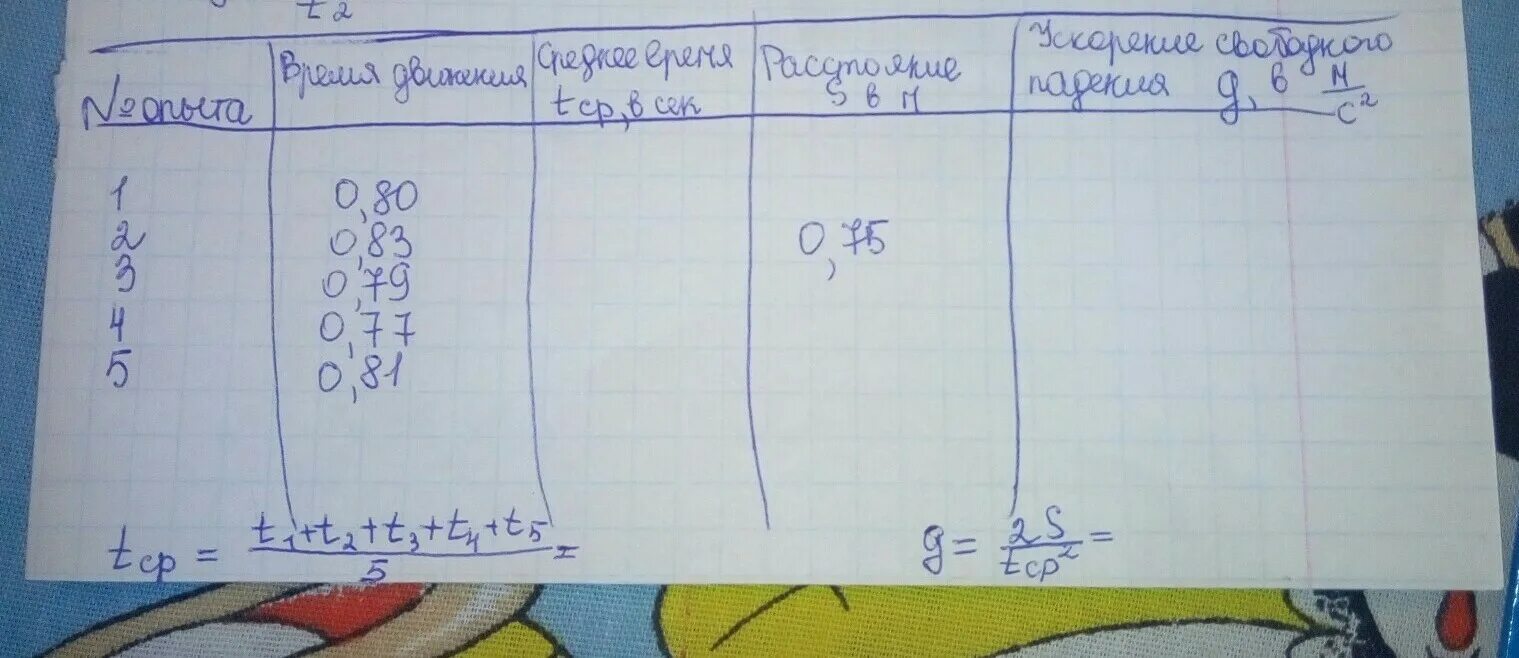 t2
№ опыта | Время движения | Среднее время tср, в сек | Расстояние S в м | Ускорение свободного падения g, в м/с²
1 | 0,80
2 | 0,83 | 0,75
3 | 0,79
4 | 0,77
5 | 0,81
tср = (t1+t2+t3+t4+t5)/5 =
g = 2S/tср² =